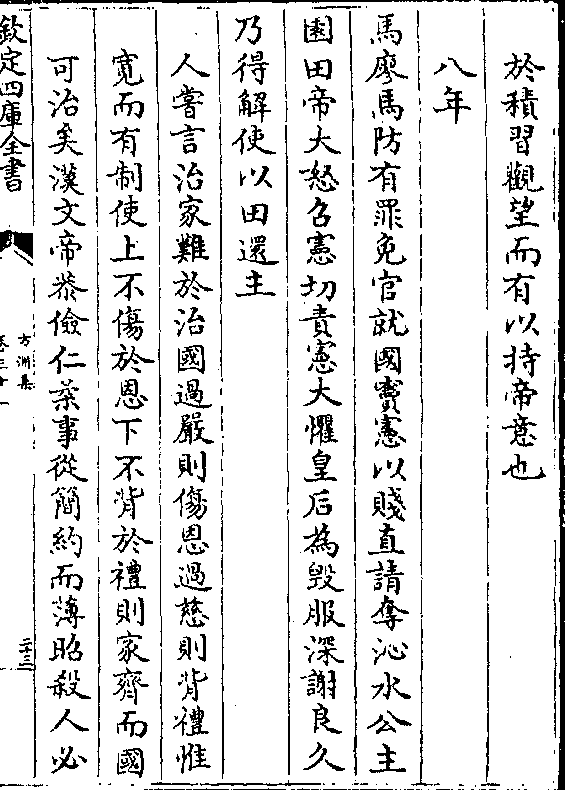 於積習觀望而有以持帝意也
八年
馬廖馬防有罪免官就國竇憲以賤直請奪沁水公主
園田帝大怒召憲切責憲大懼皇后為毀服深謝良久
乃得解使以田還主
人嘗言治家難於治國過嚴則傷恩過慈則背禮惟
寛而有制使上不傷於恩下不背於禮則家齊而國
可治矣漢文帝恭儉仁柔事從簡約而薄昭殺人必
欽定四庫全書
方洲集
卷三十一
二十三